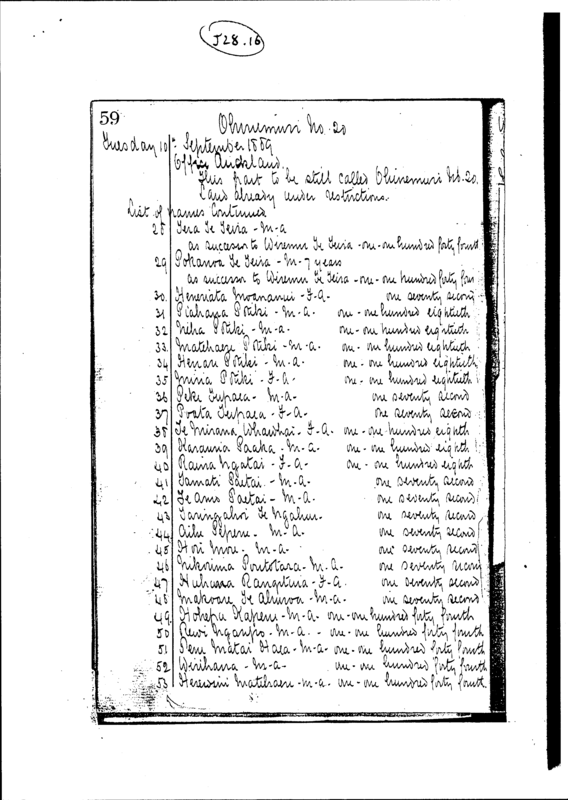 J28.16
59
Ohinemuri No. 20
Tuesday 10th September 1889
Office Auckland.
This part to be still called Ohinemuri No. 20.
Land already under restrictions.
List of names Continued
28 Tera Te Teira - M - a
as successor to Wiremu Te Teira - one - one hundred forty fourth
29 Te Teira - M - 7 years
as successor to Wiremu Te Teira - one - one hundred forty four
30. - F. a - one seventy second
31 Potiki - M. a. one - one hundred eightieth
32 Neha Potiki - M. a. one - one hundred eightieth
33. Potiki - M - a. one - one hundred eightieth
34 Henare Potiki - M. a. one - one hundred eightieth
35 Miria Potiki - F. a. one - one hundred eightieth
36 Peki Tupaea - M. a. one seventy second
37 Poata Tupaea - F. a. one seventy second
38 Te Mirana - F. a. one - one hundred eighth
39 Karauria Paaka - M. a. one - one hundred eighth
40 Raina Ngatai - F. a. one - one hundred eighth
41 Tamati Paetai - M. a. one seventy second
42 Te Amo Paetai - M. a. one seventy second
43 Taringahoi Te one seventy second
44 - M. a. one seventy second
45 Hori - M - a. one seventy second
46 Nikorima Poutotara - M. a. one seventy second
47 Huhana - F - a. one seventy second
48 Te - M - a. one seventy second
49. Hohepa - M - a. one - one hundred forty fourth
50 Rewi - M - a. - one - one hundred forty fourth
51 Matai - M - a one - one hundred forty fourth
52 Wirihana - M - a - one - one hundred forty fourth
53 - M - a. one - one hundred forty fourth